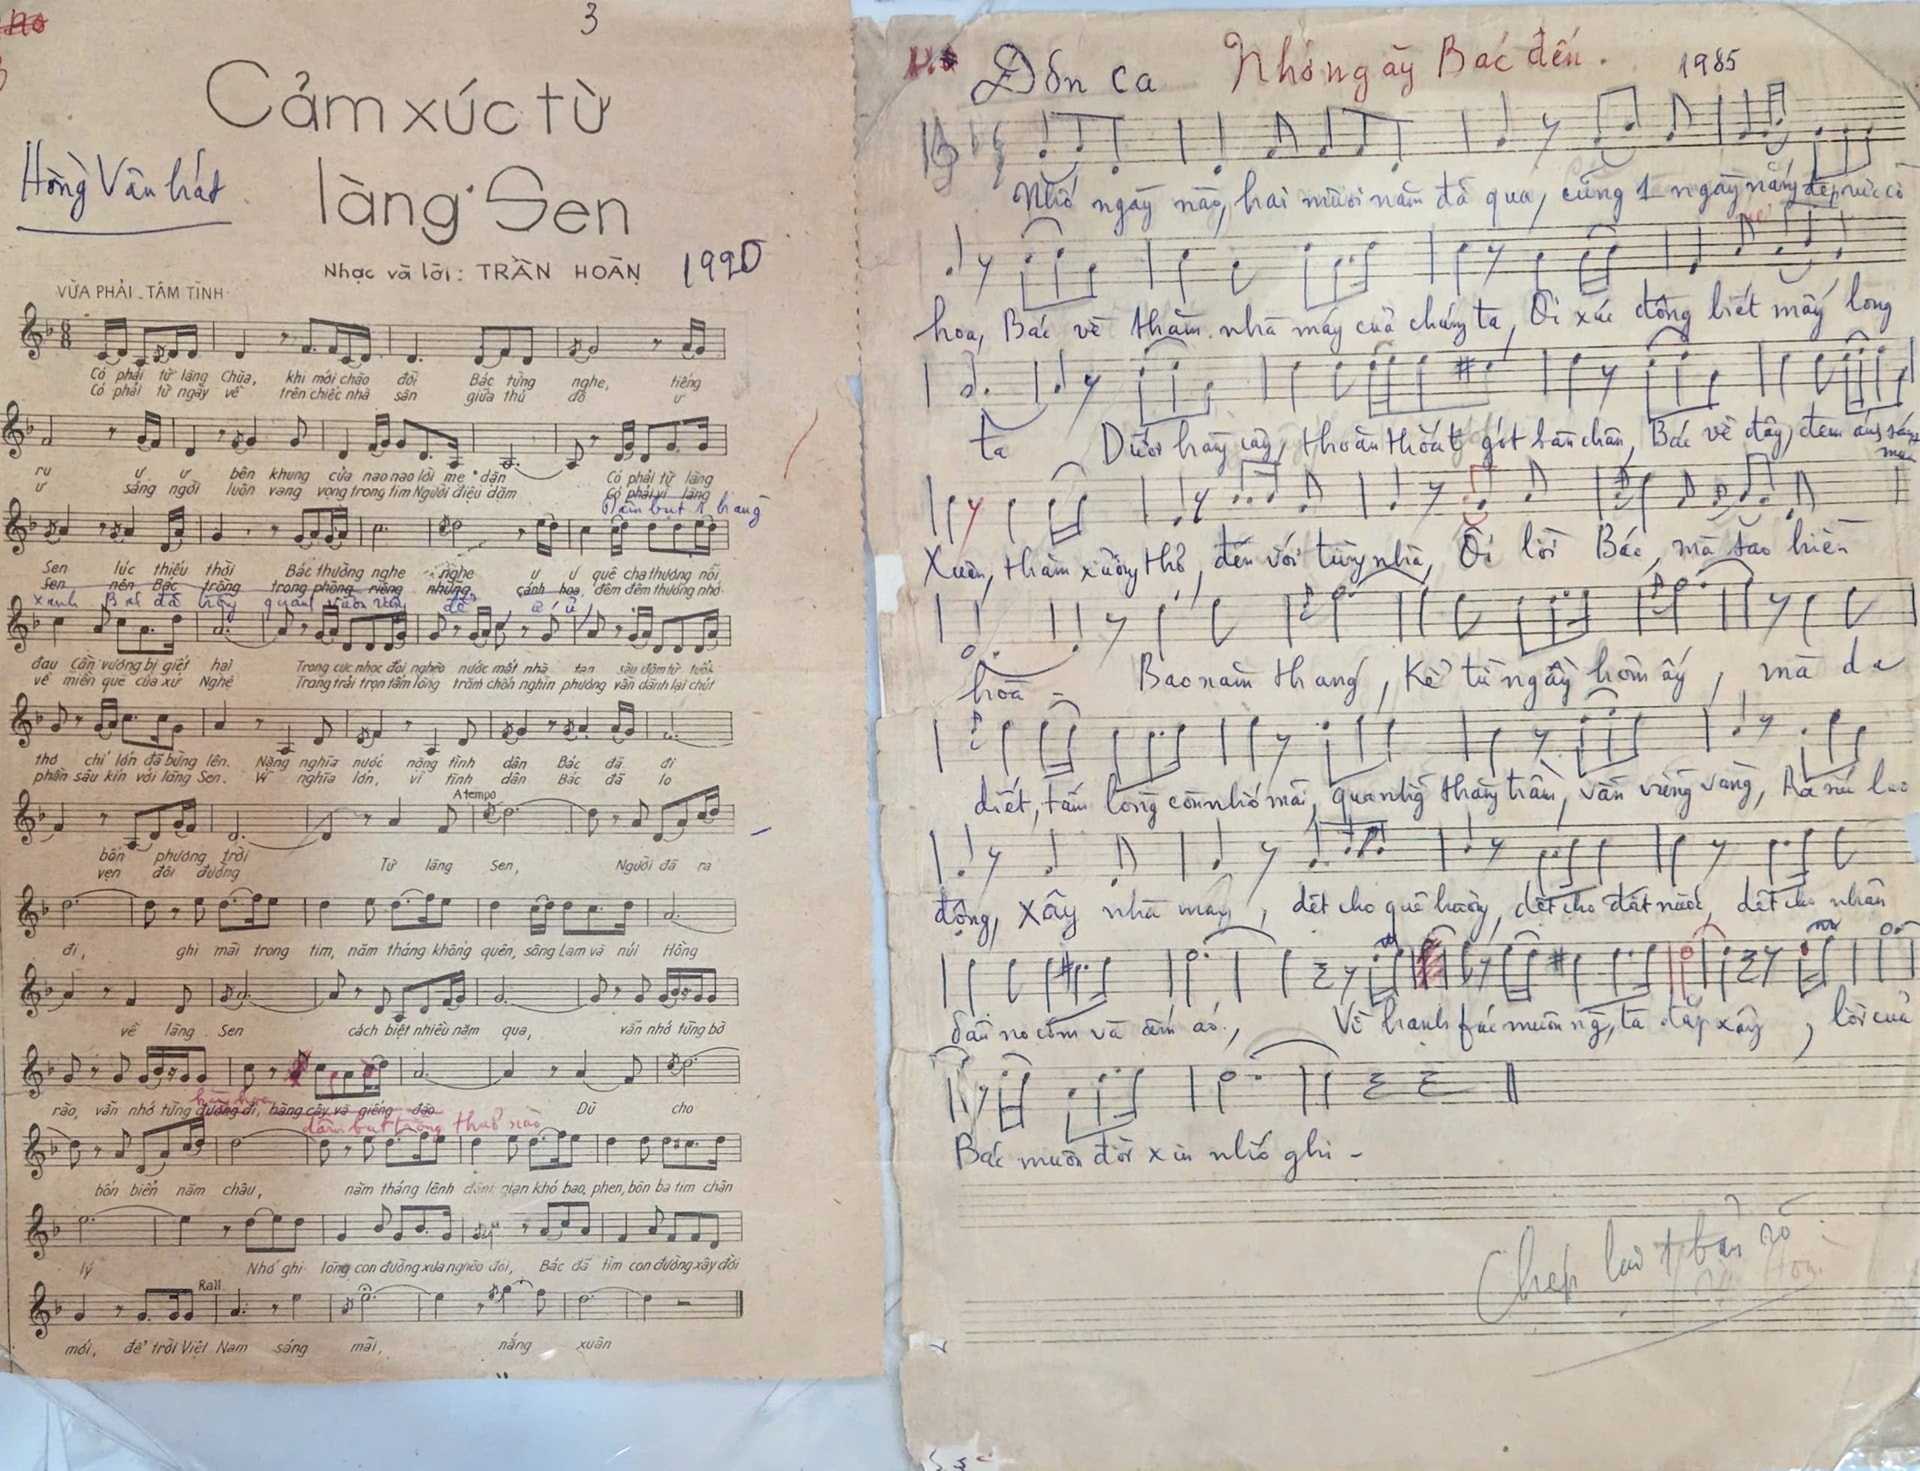 3
Cảm xúc từ
làng Sen
Hồng Vân hát
Nhạc và lời: TRẦN HOÀN 1990
VỪA PHẢI - TÂM TÌNH
Có phải từ làng Chùa, khi mới chào đời Bác từng nghe, tiếng
Có phải từ ngày về trên chiếc nhà sàn giữa thủ đô ư
ru ư ư bên khung cửa nao nao lời mẹ dặn Có phải từ làng
ư sáng ngời luôn vang vọng trong tim Người điệu dặm Có phải vì làng
Râm bụt 1 hàng
Sen lúc thiếu thời Bác thường nghe nghe ư ư quê cha thương nòi
Sen nên Bác trồng trong phòng riêng những cánh hoa, đêm đêm thương nhớ
xanh Bác đã trồng quanh vườn
đau Cần vương bị giết hại Trong cực nhọc đói nghèo nước mất nhà tan sâu đậm từ tuổi
về miền quê của xứ Nghệ Trang trải trọn tấm lòng trăm chốn nghìn phương vẫn dành lại chút
thơ chí lớn đã bừng lên. Nặng nghĩa nước nặng tình dân Bác đã đi
phần sâu kín với làng Sen. Vì nghĩa lớn, vì tình dân Bác đã lo
Atempo
bốn phương trời Từ làng Sen, Người đã ra
vẹn đôi đường
đi, ghi mãi trong tim, năm tháng không quên, sông Lam và núi Hồng
về làng Sen cách biệt nhiều năm qua, vẫn nhớ từng bờ
rào, vẫn nhớ từng đường đi, hàng cây và giếng đào Dù cho
hàng hoa
dâm bụt trồng thuở nào
bốn biển năm châu, năm tháng lênh đênh gian khó bao phen, bôn ba tìm chân
lý Nhớ ghi lòng con đường xưa nghèo đói, Bác đã tìm con đường xây đời
Rall
mới, để trời Việt Nam sáng mãi, nắng xuân
Đơn ca Nhớ ngày Bác đến. 1985
Nhớ ngày nào, hai mươi năm đã qua, cũng 1 ngày nắng đẹp rực cờ
hoa, Bác về thăm nhà máy của chúng ta, Ôi xúc động biết mấy lòng
ta Dưới hàng cây, thoăn thoắt gót bàn chân, Bác về đây, đem ánh sáng
mùa
Xuân, thăm xưởng thợ, đến với từng nhà, Ôi lời Bác, mà sao hiền
hoà - Bao năm tháng, kể từ ngày hôm ấy, mà da
diết, tấm lòng còn nhớ mãi, qua những thăng trầm, vẫn vững vàng, Ra sức lao
động, xây nhà máy, dệt cho quê hương, dệt cho đất nước, dệt cho nhân
dân no cơm và ấm áo, Vì hạnh fúc muôn ng, ta đắp xây, lời của
Bác muôn đời xin nhớ ghi -
Chép lại 1 bản rõ